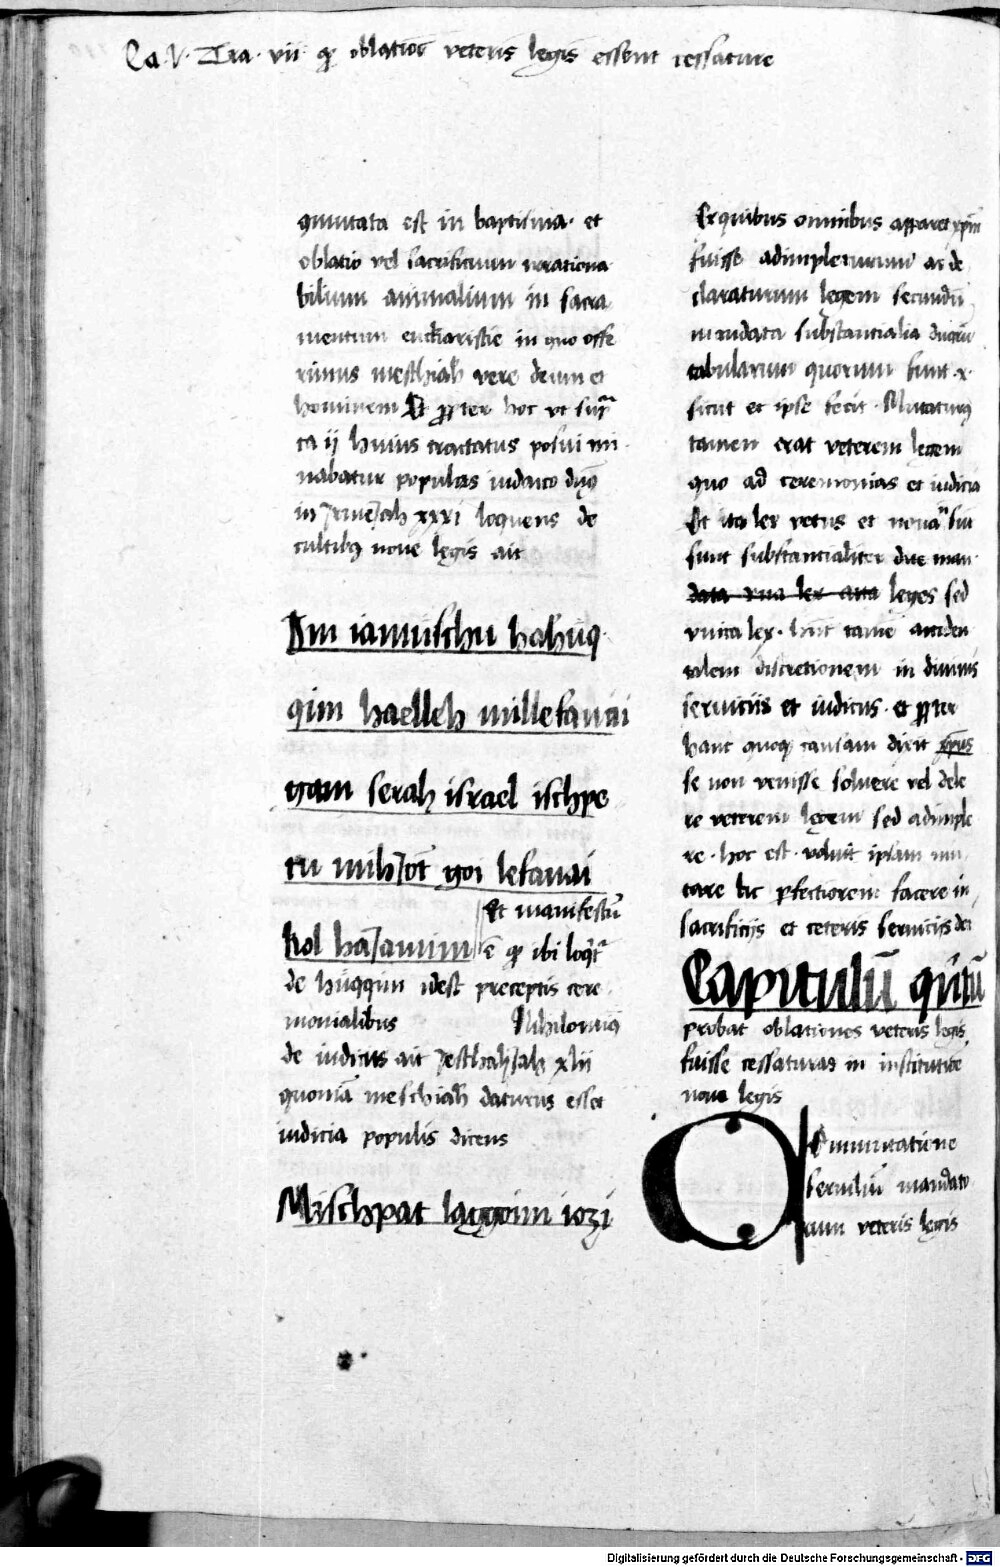 Ca. V. Tra. vii. qɔ oblatiões veteris legis essent cessature
9mutata est in baptisma. et
oblatio vel sacrificium irrationa
bilium animalium in sacra
mentum eucharistie in quo offe
rimus meschiah vere deum et
hominem Et ꝓpter hoc vt supͣ
ca ij huius tractatus posui mi
nabatur populus iudaico dn̄s
in Jrmeiah xxxi loquens de
cultibꝫ noue legis ait
Im iamuschu hahuq
qim haelleh millefanai
gam serah israel ischpe
tu mihJot goi lefanai
Et manifestū
kol haJamim ē qɔ ibi loqͥt᷑
de huqqim idest preceptis cere
monialibus Nihilominꝰ
de iudicijs ait JeschahJah xlii
quoniā meschiah daturus esset
iudicia populis dicens
Mischpat laggoim iozi
Ex quibus omnibus apparet xp̄m
fuisse adimpleturum ac de
claraturum legem secundū
mandata substantialia duarū
tabularum quorum sunt .x.
sicut et ipse fecit. Mutaturꝰ
tamen erat veterem legem
quo ad ceremonias et iudicia
Et ita lex vetus et noua
sunt substantialiter due man
data vna lex leges sed
vnica lex. hn̄t tamē acciden
talem discretionem in diuinis
seruitiis et iudicijs. et ꝓpter
hanc quoqꝫ causam dixit xp̄us
se non venisse soluere vel dele
re veterem legem sed adimple
re. hoc est. voluit ipsam mu
tare hc ꝑfectiorem facere in
sacrificijs et ceteris seruitiis dei
Capitulū quītū
probat oblationes veteris legis
fuisse cessaturas in institutiōe
noue legis
Q
ommutatione
seruiliū mandato
rum veteris legis
Digitalisierung gefördert durch die Deutsche Forschungsgemeinschaft - DFG